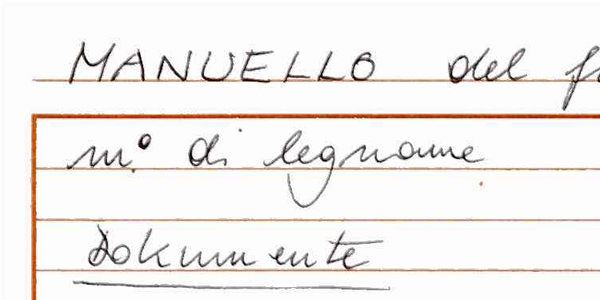 MANUELLO del
m° di legname
Dokumente